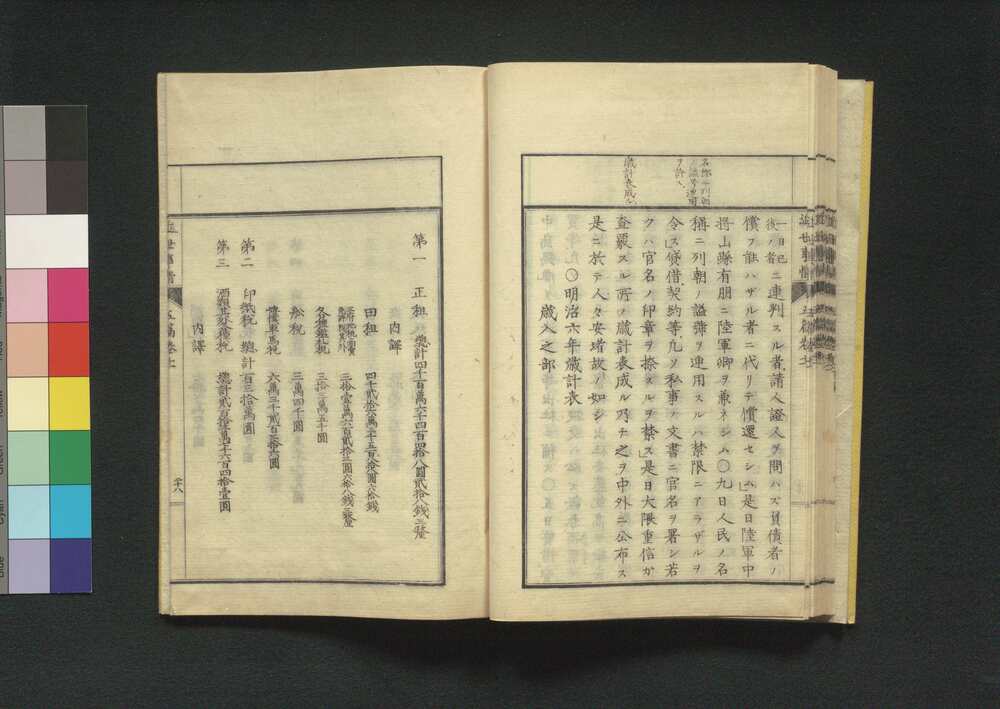 名称ニ列朝
ノ諡号連用
ヲ許ス
歳計表成ル
一日已
後ノ者ニ連判スル者、請人證人ヲ問ハズ負債者ノ
償フ能ハザル者ニ代リテ償還セシム是日陸軍中
将山縣有朋ニ陸軍卿ヲ兼ネシム〇九日人民ノ名
稱ニ列朝ノ諡號ヲ連用スルハ禁限ニアラザルヲ
令ス貸借契約等凡ソ私事ノ文書ニ官名ヲ署シ若
クハ官名ノ印章ヲ捺スルヲ禁ス是日大隈重信カ
査覈スル所ノ歳計表成ル乃チ之ヲ中外ニ公布ス
是ニ於テ人々安堵故ノ如シ
〇明治六年歳計表
歳入之部
第一 正租 總計四千百萬六千四百四拾八圓貳拾八錢三釐
内譯
田租 四千貳拾六萬二千五百八拾圓六拾錢
三拾壹萬六百貳拾三圓六拾八錢三釐
各種鑑札税 三拾三萬五十圓
舩税 三萬四千圓
僕婢車馬税 六萬三千貳百三拾六圓
第二 印紙税 總計百三拾萬圓
第三 酒類其外種税 總計貳百拾三萬二千六百四拾壹圓
内譯
近世事情 五篇巻十一
十八